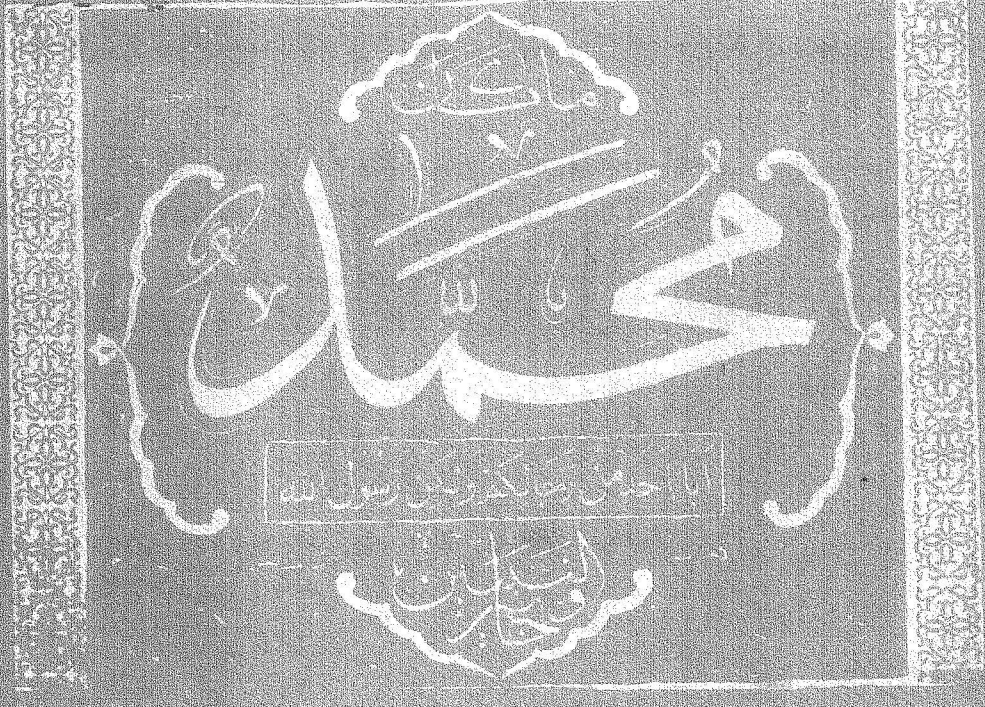 ما كان
محمد
ابا احد من رجالكم ولكن رسول الله
وخاتم النبيين